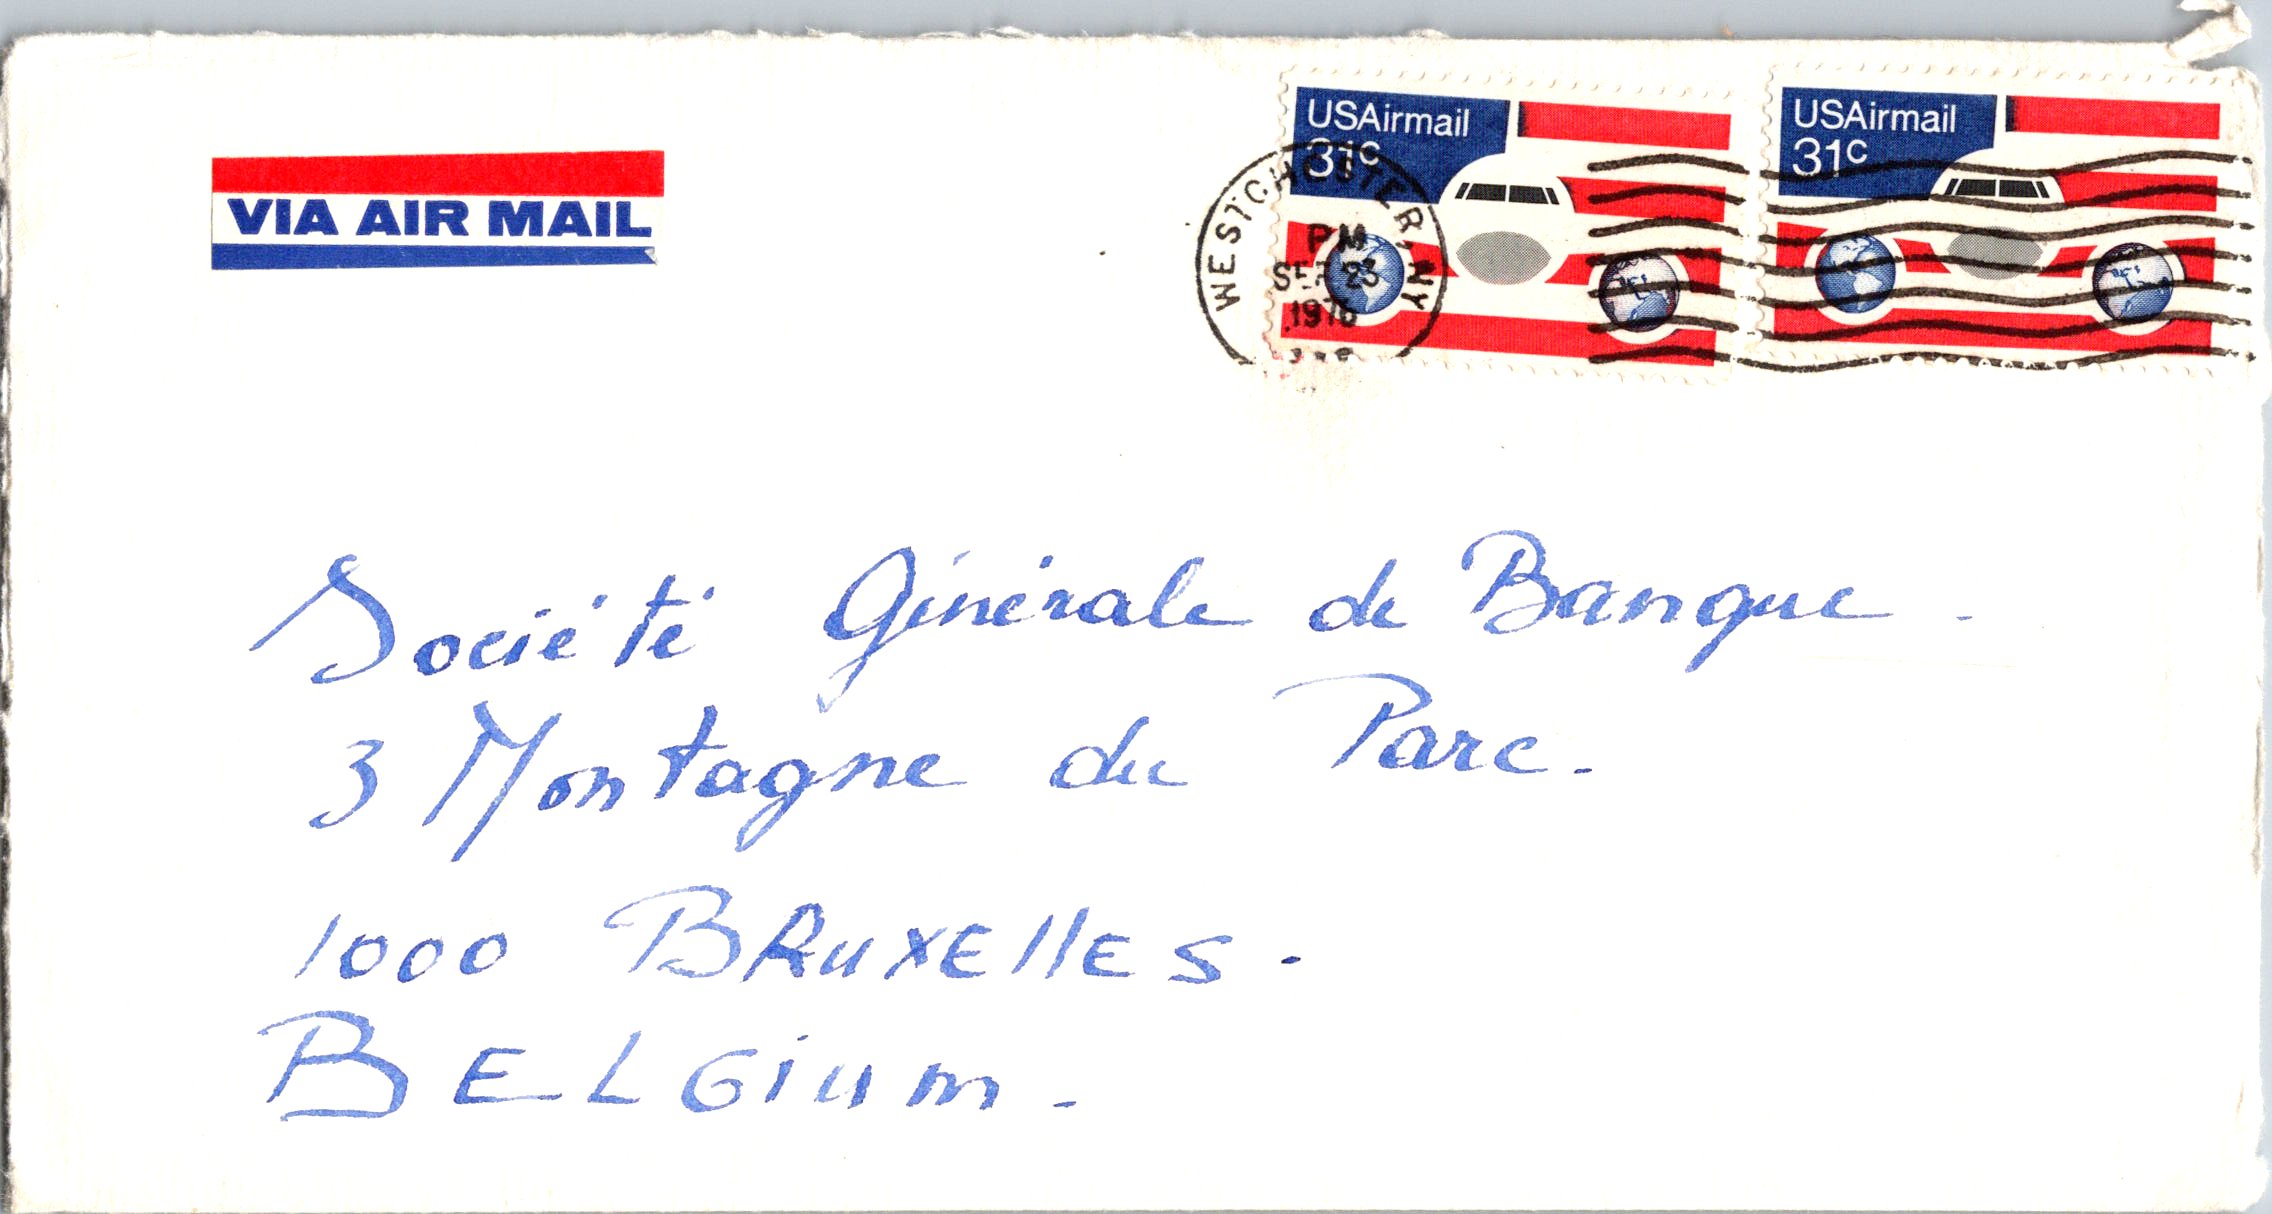 VIA AIR MAIL
USAirmail
31c
USAirmail
31c
WESTCHESTER, NY
PM
SEP 23
1976
Société Générale de Banque -
3 Montagne du Parc.
1000 BRUXELLES.
BELGIUM.